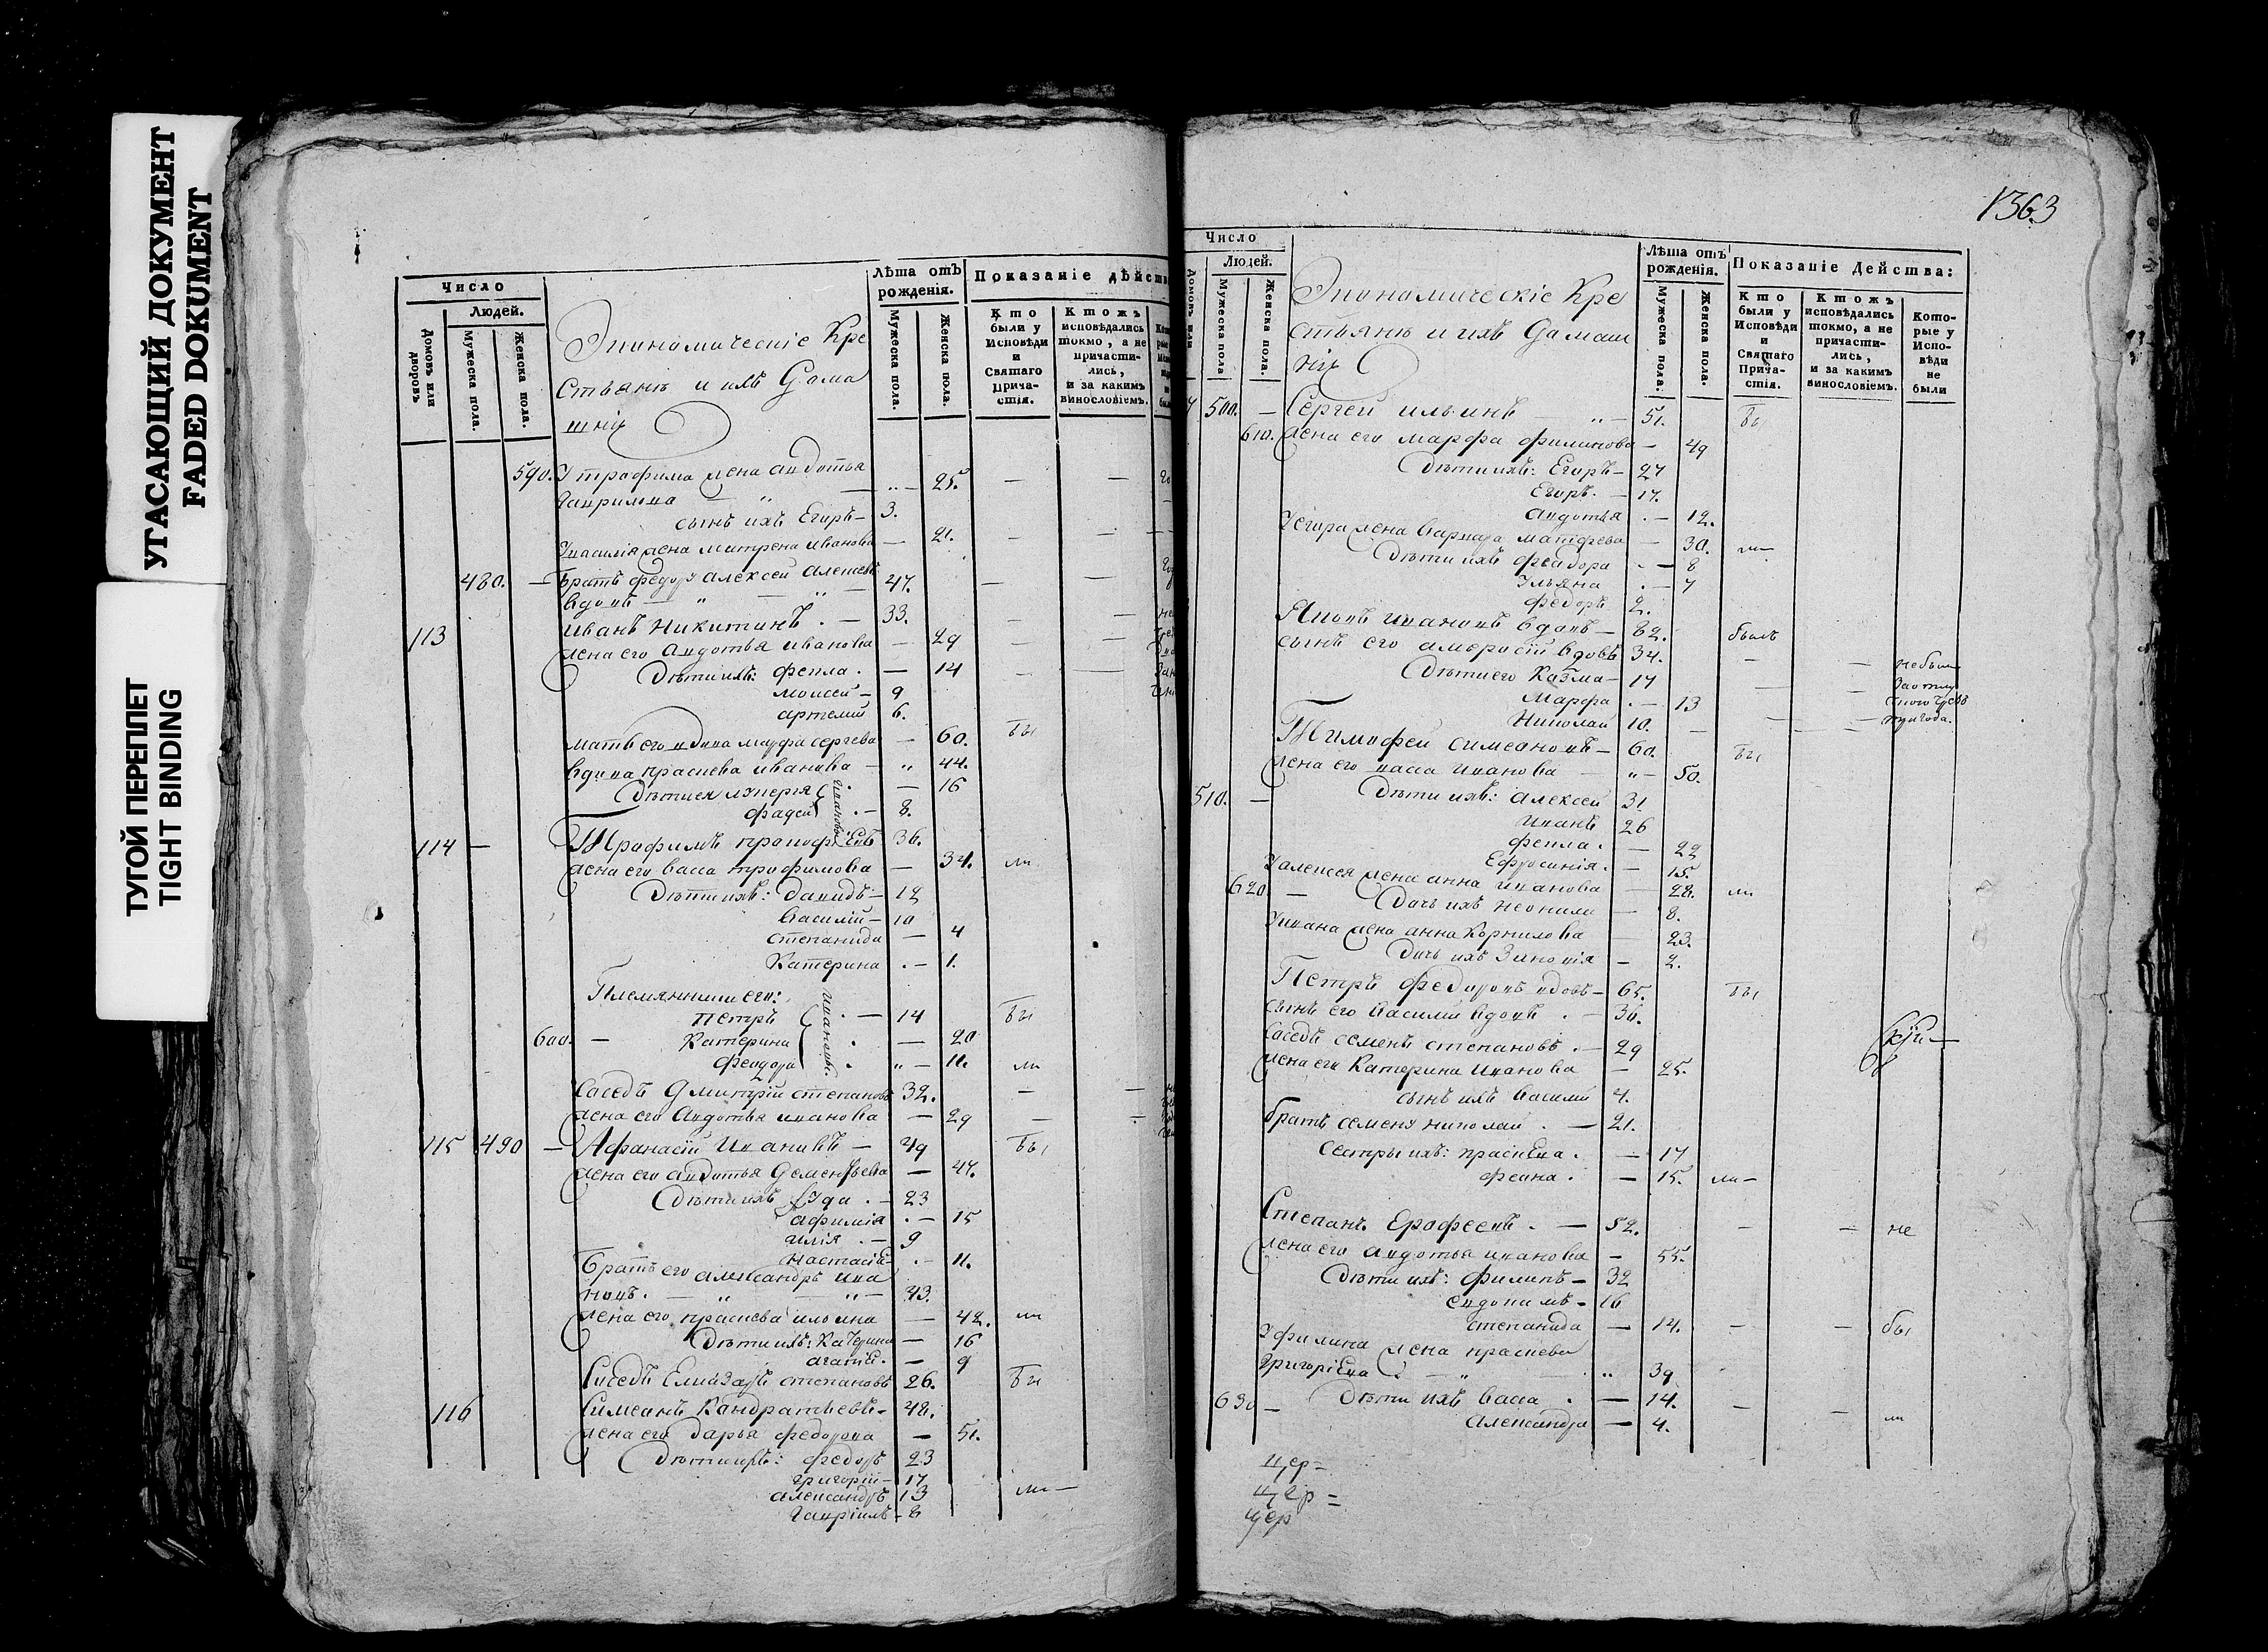 УГАСАЮЩИЙ ДОКУМЕНТ
FADED DOKUMENT
ТУГОЙ ПЕРЕПЛЕТ
TIGHT BINDING
Число
Людей.
Домовъ или дворовъ
Мужеска пола.
Женска пола.
Экономическіе Кре
стьянъ и ихъ Дома
шніх
Лѣта отъ рожденія.
Мужеска пола.
Женска пола.
Показаніе дѣйст
Кто были у Исповѣди и Святаго Прича- стія.
Ктожъ исповѣдались токмо, а не причасти- лись, и за какимъ винословіемъ.
590. У трафима жена авдотья
Гаврилова — 25.
сынъ ихъ Егоръ — 3.
У василія жена матрена иванова — 21.
480. — Братъ федору алексей алексеевъ
вдовъ — 47.
113 иванъ Никитинъ — 33.
жена его авдотья иванова — 29
Дѣти ихъ: фекла — 14
моисей — 9
артемій 6.
мать его вдова марфа сергева — 60. бы
вдова прасковя иванова — 44.
Дѣти ея лукерья — 16
фадей — 8.
Ивановы
114 — Трафимъ прокофіевъ 36.
жена его васа трофимова — 34. ли
Дѣти ихъ: давидъ — 12
василій — 10
степанида — 4
Катерина — 1.
Племянники его:
петръ — 14 бы
600. — Катерина — 20
феодора — 11. ли
Ивановы.
Саседъ Дмитрій степановъ 32.
жена его авдотья иванова — 29
115 490 — Афанасій Ивановъ — 49 бы
жена его авдотья Дементьева — 47.
Дѣти ихъ Іуда — 23
афимія — 15
илія — 9
настасіа — 11.
Братъ его александръ ива
новъ. — 43.
жена его прасковя ильина — 42. ли
Дѣти ихъ: Катерина — 16
агапіа — 9
Саседъ Елиазаръ степановъ 26. бы
116 Симеонъ Кондратьевъ — 48.
жена его Дарья федорова — 51.
Дѣти ихъ: федоръ 23
Григорій — 17
александръ 13 ли —
Гавріилъ — 8
1363
Число
Людей.
Домовъ или
Мужеска пола
Женска пола.
Экономическіе Кре
стьянъ и ихъ Дамаш
ніх
Лѣта отъ рожденія.
Мужеска пола.
Женска пола.
Показаніе Действа:
Кто были у Исповѣди и Святаго Прича- стія.
Ктожъ исповѣдались токмо, а не причасти- лись, и за какимъ винословіемъ.
Кото- рые у Испо- вѣди не были
7 500. — Сергей ильинъ — 51. бы
610. жена его марфа филипова — 49
Дѣти ихъ: Егоръ — 27
Егоръ. — 17.
авдотья — 12.
У егора жена варвара матфева — 30. ли
Дѣти ихъ феодора — 8
Ульяна — 7
федоръ 2.
Яковъ ивановъ вдовъ — 82. былъ
сынъ его амбросій вдовъ 34. — — небыли
Дѣти его Казма — 17
Марфа — 13
Николай 10.
Тимофей симеоновъ — 60. бы
жена его васса иванова — 50.
510. — Дѣти ихъ: алексей 31.
иванъ 26
фекла. — 22
Ефросинія. — 15.
У алексея жена анна иванова — 28. ли
620 — Дочь ихъ неонила — 8.
У ивана жена анна Корнилова — 23.
Дочь ихъ Зиновія — 2.
Петръ Федоровъ вдовъ — 65. бы
сынъ его Василій вдовъ — 30.
Саседъ семенъ степановъ — 29
жена его Катерина Иванова — 25.
сынъ ихъ василій 4.
братъ семену николай — 21.
Сестры ихъ: прасковя — 17
феона. — 15. ли —
Степанъ Ерофеевъ — 52. — — не
жена его авдотья иванова — 55.
Дѣти ихъ: филипъ — 32
евдокимъ — 16
степанида — 14. — — бы
У филипа жена прасковя
Григоріева — 39
630 — Дѣти ихъ васа — 14. — — ли
александра — 4.
цер =
цер =
цер